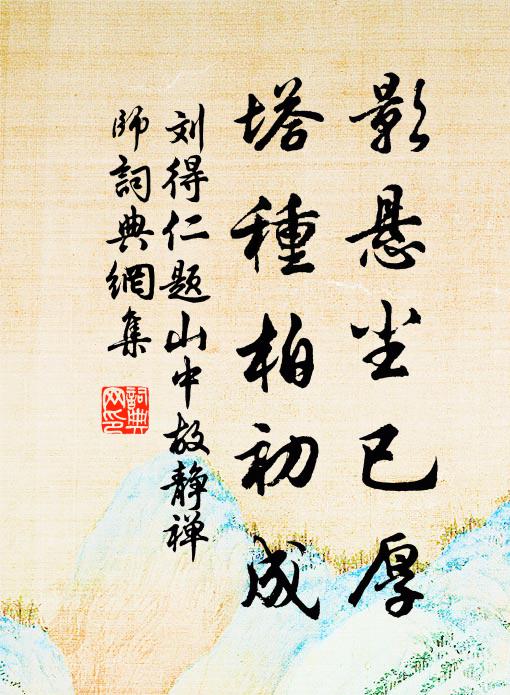 影悬尘已厚
塔種柏初成
刘得仁题山中故静禅
师詞典網集
詞典
网印